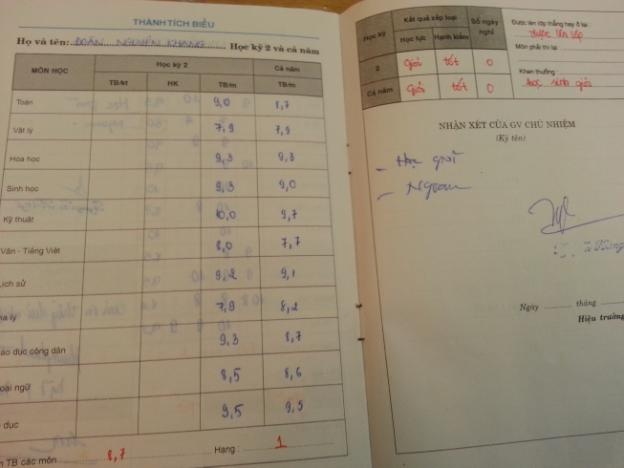 THÀNH TÍCH BIỂU
Họ và tên: ĐOÀN NGUYÊN KHANG Học kỳ 2 và cả năm
MÔN HỌC Học kỳ 2 Cả năm
TB/kt HK TB/m TB/m
Toán 9,0 8,7
Vật lý 7,9 7,9
Hóa học 9,3 9,3
Sinh học 9,3 9,0
Kỹ thuật 10,0 9,7
Văn - Tiếng Việt 8,0 7,7
Lịch sử 9,2 9,1
ịa lý 7,9 8,2
áo dục công dân 9,3 8,7
oại ngữ 8,5 8,6
dục 9,5 9,5
TB các môn 8,7 Hạng: 1
Học kỳ Kết quả xếp loại Số ngày nghỉ
Học lực Hạnh kiểm
2 Giỏi tốt 0
Cả năm Giỏi tốt 0
Được lên lớp thẳng hay ở lại:
được lên lớp
Môn phải thi lại:
Khen thưởng:
học sinh giỏi
NHẬN XÉT CỦA GV CHỦ NHIỆM
(Ký tên)
- Học giỏi
- Ngoan
Ngày tháng
Hiệu trưởng